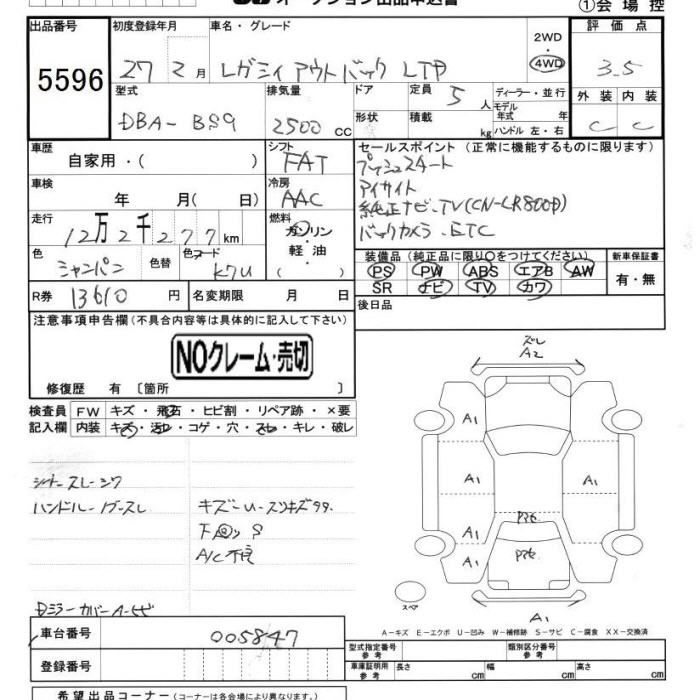 ①会場控
出品番号 初度登録年月 車名・グレード 2WD・4WD 評価点
5596 27 2月 レガシィ アウトバック LTD 3.5
型式 排気量 ドア 定員 5人 ディーラー・並行 外装 内装
DBA-BS9 2500cc 形状 積載 kg モデル年式 年 ハンドル 左・右 C C
車歴 自家用・( ) シフト FAT セールスポイント (正常に機能するものに限ります)
プッシュスタート
車検 年 月(日) 冷房 AAC アイサイト
純正ナビ・TV(CN-LR800D)
走行 12万2千277km 燃料 ガソリン・軽油( ) バックカメラ・ETC
色 シャンパン 色替 色コード K7U 装備品(純正品に限り○をつけてください) 新車保証書
PS PW ABS エアB AW 有・無
SR ナビ TV カワ
R券 13610円 名変期限 月 日 後日品
注意事項申告欄(不具合内容等は具体的に記入して下さい)
NOクレーム・売切
修復歴 有〔箇所 〕
検査員 FW キズ・飛石・ヒビ割・リペア跡・×要
記入欄 内装 キズ・汚レ・コゲ・穴・スレ・キレ・破レ
ズレ
A2
A1
A1 A1
A1 A1
A1
ハンドル
キズ-U-スリキズタタ
下回リS
A/C不良
スペア
A-キズ E-エクボ U-凹み W-補修跡 S-サビ C-腐食 XX-交換済
車台番号 005847
登録番号
型式指定番号 参考 類別区分番号 参考
車庫証明用 参考 長さ cm 幅 cm 高さ cm
希望出品コーナー(コーナーは各会場により異なります。)